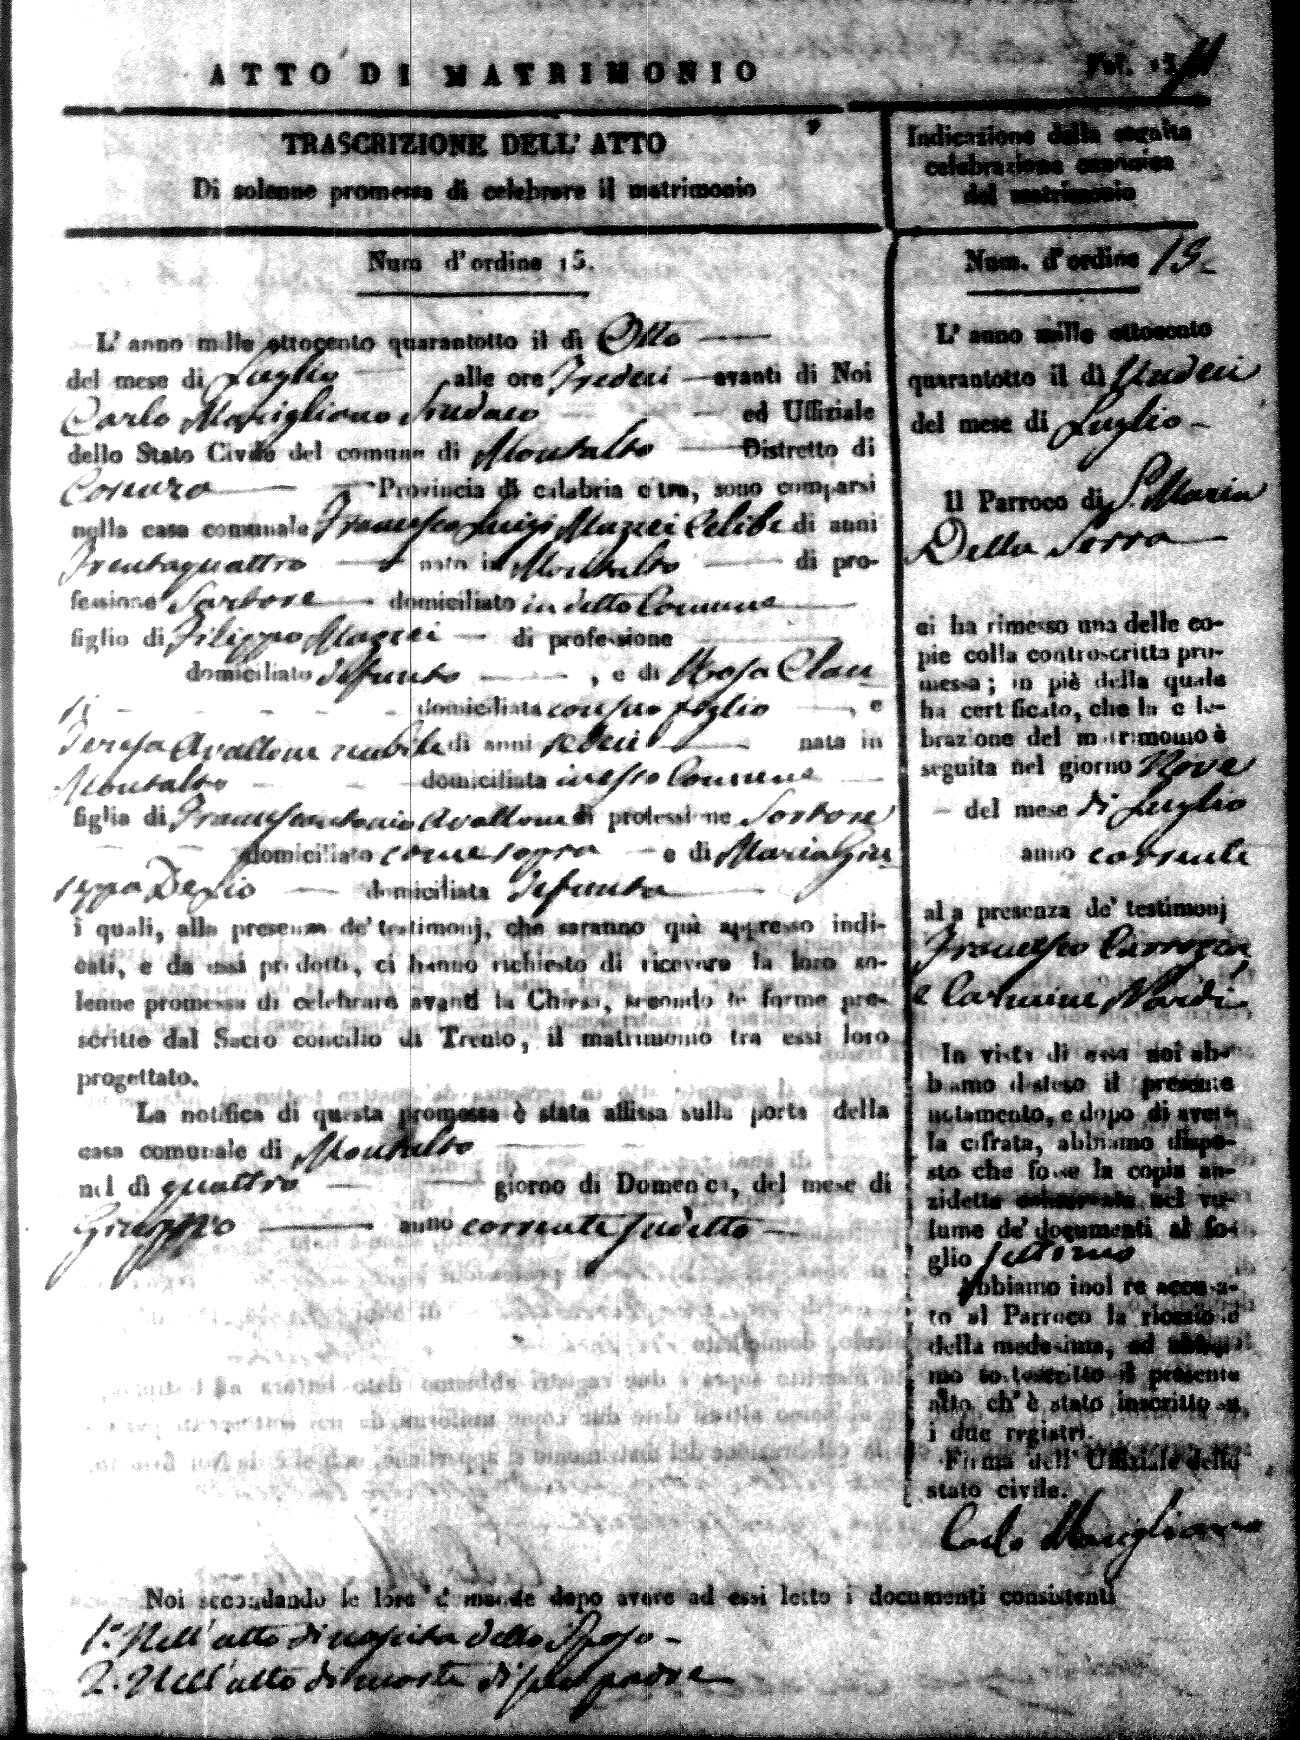 ATTO DI MATRIMONIO
Fol. 15
TRASCRIZIONE DELL' ATTO
Di solenne promessa di celebrare il matrimonio
Num d'ordine 15.
L' anno mille ottocento quarantotto il dì Otto
del mese di Luglio alle ore Tredeci avanti di Noi
Carlo Marigliano Sindaco ed Uffiziale
dello Stato Civile del comune di Montalto Distretto di
Cosenza Provincia di calabria citra, sono comparsi
nella casa comunale Francesco Luigi Mazzei Celibe di anni
Trentaquattro nato in Montalto di pro-
fessione Sartore domiciliato in detto Comune
figlio di Filippo Mazzei di professione
domiciliato defunto , e di Rosa
domiciliata con suo figlio , e
Teresa Avallone nubile di anni sedeci nata in
Montalto domiciliata in esso Comune
figlia di Francescantonio Avallone di professione Sartore
domiciliato come sopra e di Maria Giu
seppa domiciliata defunta
i quali, alla presenza de' testimonj, che saranno quì appresso indi-
cati, e da essi prodotti, ci hanno richiesto di ricevere la loro so-
lenne promessa di celebrare avanti la Chiesa, secondo le forme pre-
scritte dal Sacro concilio di Trento, il matrimonio tra essi loro
progettato.
La notifica di questa promessa è stata affissa sulla porta della
casa comunale di Montalto
nel dì quattro giorno di Domenica, del mese di
Giugno anno corrente sudetto
Noi secondando le loro dimande dopo avere ad essi letto i documenti consistenti
1.° Nell'atto di nascita dello Sposo
2. Nell'atto di morte di suo padre
Indicazione della seguita
celebrazione canonica
del matrimonio
Num. d'ordine 15
L' anno mille ottocento
quarantotto il dì Undeci
del mese di Luglio
Il Parroco di S. Maria
Della Serra
ci ha rimesso una delle co-
pie colla controscritta pro-
messa; in piè della quale
ha certificato, che la cele-
brazione del matrimonio è
seguita nel giorno Nove
del mese di Luglio
anno corrente
alla presenza de' testimonj
Francesco
e Carmine Nardi
In vista di essa noi ab-
biamo disteso il presente
notamento, e dopo di aver-
la cifrata, abbiamo dispo-
sto che fosse la copia an-
zidetta conservata nel vo-
lume de' documenti al fo-
glio settimo
Abbiamo inoltre accusa-
to al Parroco la ricezione
della medesima, ed abbia-
mo sottoscritto il presente
atto ch' è stato inscritto su
i due registri.
Firma dell' Uffiziale dello
stato civile.
Carlo Marigliano